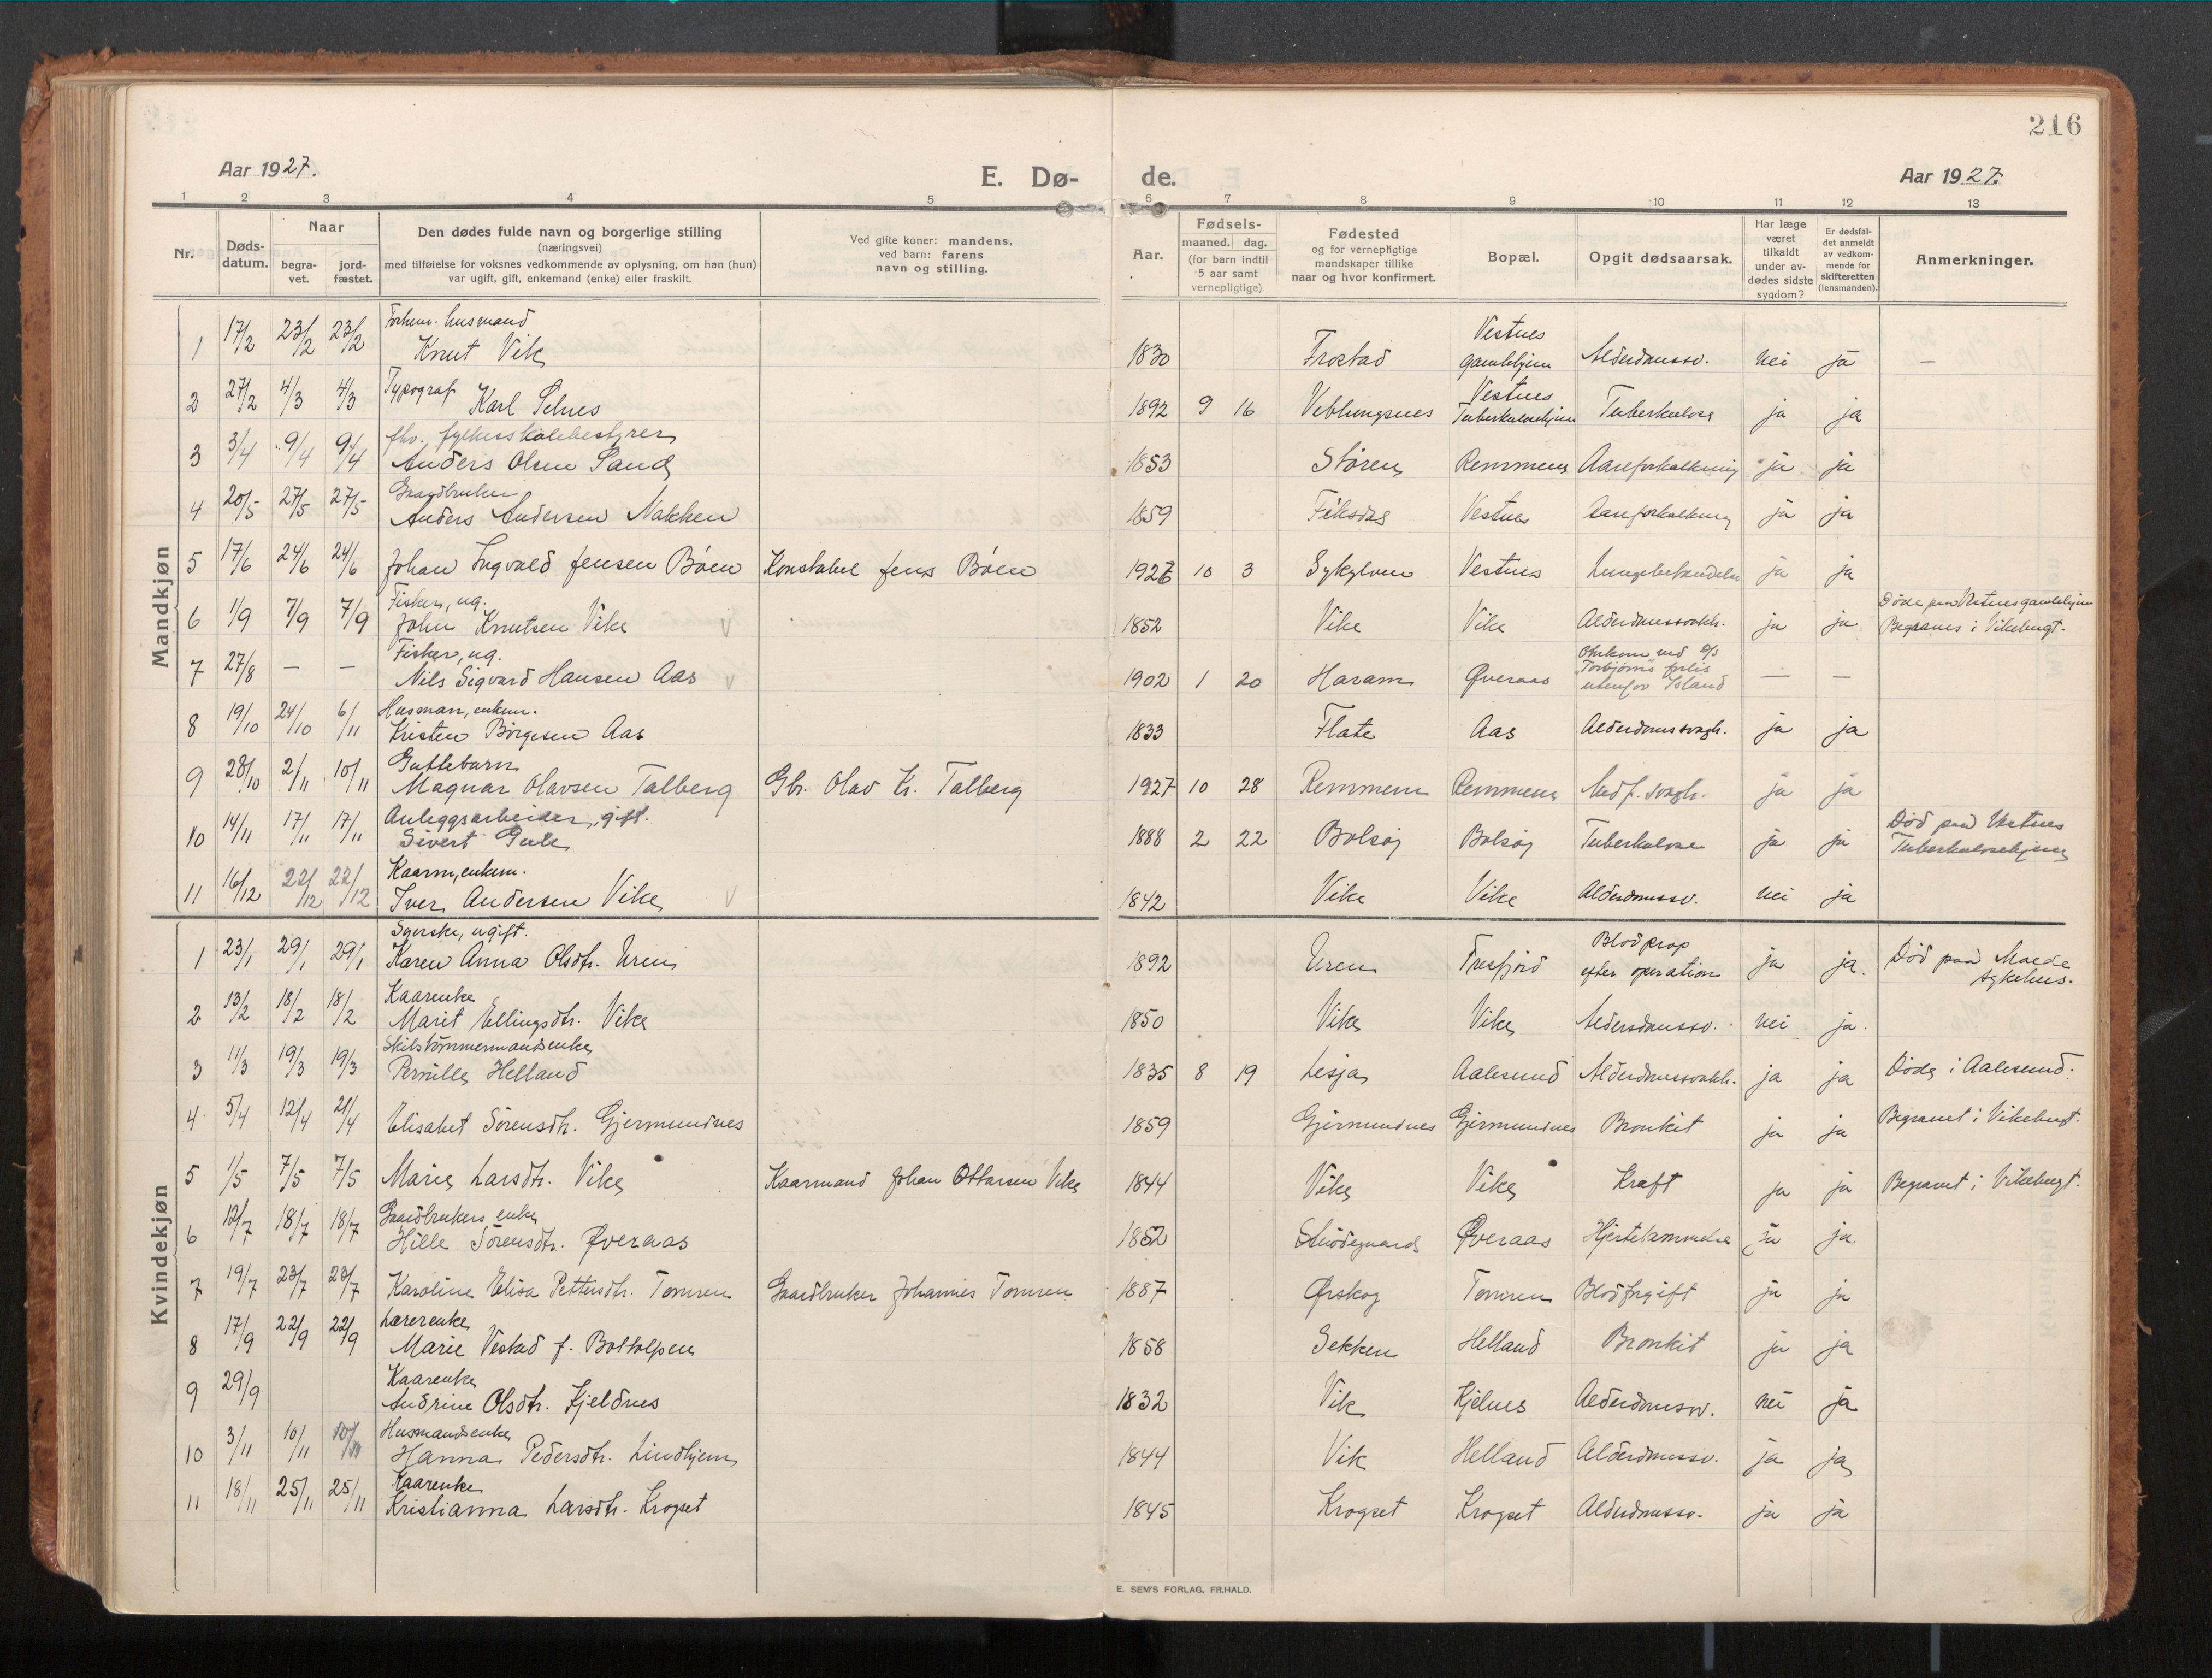 216
Aar 1927. E. Dø- de. Aar 1927.
1 2 3 4 5 6 7 8 9 10 11 12 13
Nr. Døds-datum. Naar begra-vet. jord-fæstet. Den dødes fulde navn og borgerlige stilling (næringsvei) med tilføielse for voksnes vedkommende av oplysning, om han (hun) var ugift, gift, enkemand (enke) eller fraskilt. Ved gifte koner: mandens, ved barn: farens navn og stilling. Aar. Fødsels- maaned. dag. (for barn indtil 5 aar samt vernepligtige) Fødested og for vernepligtige mandskaper tillike naar og hvor konfirmert. Bopæl. Opgit dødsaarsak. Har læge været tilkaldt under av-dødes sidste sygdom? Er dødsfal-det anmeldt av vedkom-mende for skifteretten (lensmanden). Anmerkninger.
Mandkjøn
1 17/2 23/2 23/2 Forhenv. husmand Knut Vik 1830 Frostad Vestnes gamlehjem Alderdomssv. nei ja —
2 27/2 4/3 4/3 Typograf Karl Selnes 1892 9 16 Veblungsnes Vestnes Tuberkulosehjem Tuberkulose ja ja
3 3/4 9/4 9/4 fhv. fylkesskolebestyrer Anders Olsen Sand 1853 Støren Remmem Aareforkalkning ja ja
4 20/5 27/5 27/5 Gaardbruker Anders Andersen Nakken 1859 Fiksdal Vestnes Aareforkalkning ja ja
5 17/6 24/6 24/6 Johan Ingvald Jensen Bøen Konstabel Jens Bøen 1926 10 3 Sykylven Vestnes ja ja
6 1/9 7/9 7/9 Fisker, ug. John Knutsen Vike v 1852 Vike Vike Alderdomssvakh. ja ja Døde paa Vestnes gamlehjem Begraves i Vikebugt.
7 27/8 — — Fisker, ug. Nils Sigvard Hansen Aas v 1902 1 20 Haram Øveraas Omkom ved D/S "Torbjørns" forlis utenfor Island — —
8 19/10 24/10 6/11 Husman, enkem. Kristen Børgesen Aas 1833 Flate Aas Alderdomssvagh. ja ja
9 28/10 2/11 10/11 Guttebarn Magnar Olavsen Talberg Gbr. Olav Kr. Talberg 1927 10 28 Remmem Remmem Medf. svagh. ja ja
10 14/11 17/11 17/11 Anleggsarbeider, gift. Sivert Gule 1888 2 22 Bolsøy Bolsøy Tuberkulose ja ja Død paa Vestnes Tuberkulosehjem
11 16/12 22/12 22/12 Kaarm, enkem. Iver Andersen Vike v 1842 Vike Vike Alderdomssv. nei ja
Kvindekjøn
1 23/1 29/1 29/1 Syerske, ugift. Karen Anna Olsdtr. Uren 1892 Uren Tresfjord Blodprop efter operation ja ja. Død paa Molde sykehus.
2 13/2 18/2 18/2 Kaarenke Marit Ellingsdtr. Vike 1850 Vike Vike Aldersdomssv. nei ja.
3 11/3 19/3 19/3 Skibstømmermandsenke Pernille Helland 1835 8 19 Lesja Aalesund Alderdomssvakh. ja ja Døde i Aalesund.
4 5/4 12/4 21/4 Elisabet Sørensdtr. Gjermundnes 1859 Gjermundnes Gjermundnes Bronkit ja ja Begravet i Vikebugt.
5 1/5 7/5 7/5 Marie Larsdtr. Vike Kaarmand Johan Ottarsen Vike 1844 Vike Vike Kræft ja ja Begravet i Vikebugt.
6 12/7 18/7 18/7 Gaardbrukers enke Hille Sørensdtr. Øveraas 1852 Øveraas Hjertelammelse ja ja
7 19/7 23/7 23/7 Karoline Elisa Pettersdtr. Tomren Gaardbruker Johannes Tomren 1887 Ørskog Tomren Blodforgift ja ja
8 17/9 22/9 22/9 Lærerenke Marie Vestad f. Bottolfsen 1858 Sekken Helland Bronkit ja ja
9 29/9 Kaarenke Andrine Olsdtr. Kjeldnes 1832 Vik Kjelnes Alderdomssv. nei ja
10 3/11 10/11 10/11 Husmandsenke Hanna Pedersdtr. Lindhjem 1844 Vik Helland Alderdomssv. ja ja
11 18/11 25/11 25/11 Kaarenke Kristianna Larsdtr. Krogset 1845 Krogset Krogset Alderdomssv. ja ja
E. SEM'S FORLAG, FR.HALD.